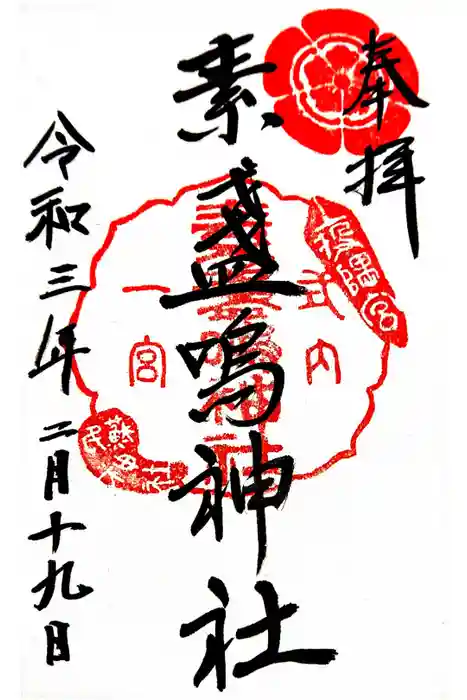 奉拝
疫隅宮
式内
素盞嗚神社
一宮
蘇民
令和三年二月十九日